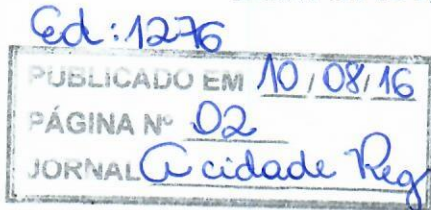 Ed: 1276
PUBLICADO EM 10/08/16
PÁGINA Nº 02
JORNAL A cidade Reg